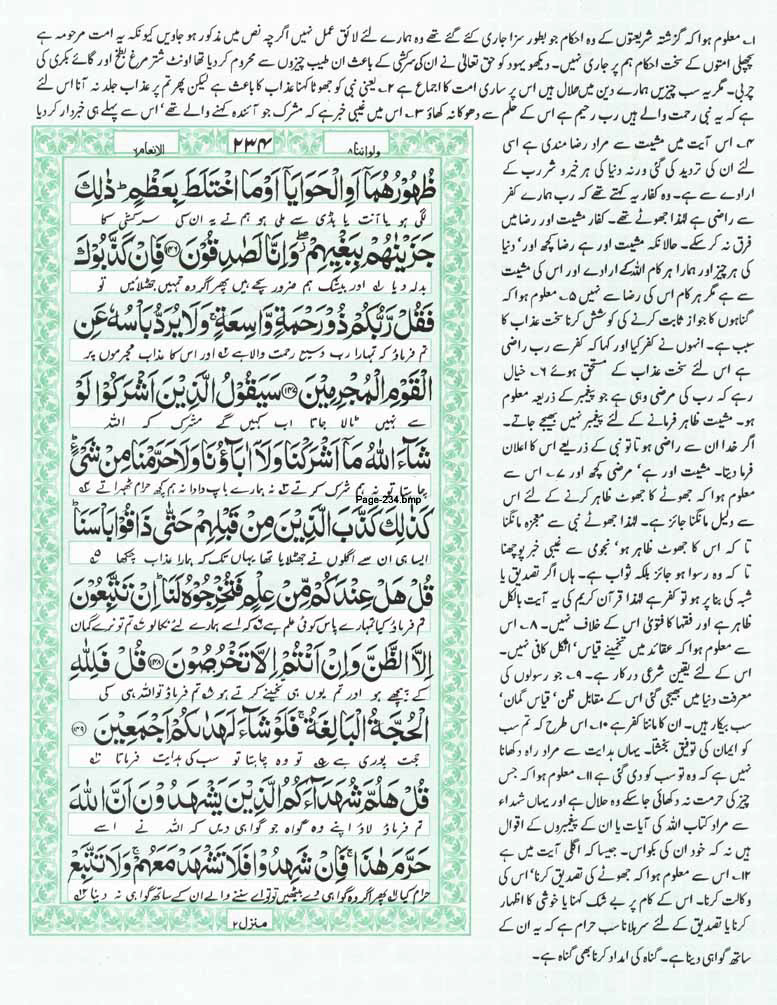 ۱۔ معلوم ہوا کہ گزشتہ شریعتوں کے وہ احکام جو بطور سزا جاری کئے گئے تھے وہ ہمارے لئے لائق عمل نہیں اگرچہ نص میں مذکور ہو جاویں کیونکہ یہ امت مرحومہ ہے
پچھلی امتوں کے سخت احکام ہم پر جاری نہیں۔ دیکھو یہود کو حق تعالیٰ نے ان کی سرکشی کے باعث ان طیب چیزوں سے محروم کر دیا تھا اونٹ شتر مرغ بطخ اور گائے بکری کی
چربی۔ مگر یہ سب چیزیں ہمارے دین میں حلال ہیں اس پر ساری امت کا اجماع ہے ۲۔ یعنی نبی کو جھوٹا کہنا عذاب کا باعث ہے لیکن پھر تم پر عذاب جلد نہ آنا اس لئے
ہے کہ یہ نبی رحمت والے ہیں رب رحیم ہے اس کے حلم سے دھوکا نہ کھاؤ ۳۔ اس میں غیبی خبر ہے کہ مشرک جو آئندہ کہنے والے تھے' اس سے پہلے ہی خبردار کر دیا
۴۔ اس آیت میں مشیت سے مراد رضا مندی ہے اسی
لئے ان کی تردید کی گئی ورنہ دنیا کی ہر خیر و شر رب کے
ارادے سے ہے۔ وہ کفار یہ کہتے تھے کہ رب ہمارے کفر
سے راضی ہے لہٰذا جھوٹے تھے۔ کفار مشیت اور رضا میں
فرق نہ کر سکے۔ حالانکہ مشیت اور ہے رضا کچھ اور' دنیا
کی ہر چیز اور ہمارا ہر کام اللہ کے ارادے اور اس کی مشیت
سے ہے مگر ہر کام اس کی رضا سے نہیں ۵۔ معلوم ہوا کہ
گناہوں کا جواز ثابت کرنے کی کوشش کرنا سخت عذاب کا
سبب ہے۔ انہوں نے کفر کیا اور کہا کہ کفر سے رب راضی
ہے اس لئے سخت عذاب کے مستحق ہوئے ۶۔ خیال
رہے کہ رب کی مرضی وہی ہے جو پیغمبر کے ذریعہ معلوم
ہو۔ مشیت ظاہر فرمانے کے لئے پیغمبر نہیں بھیجے جاتے۔
اگر خدا ان سے راضی ہوتا تو نبی کے ذریعے اس کا اعلان
فرما دیتا۔ مشیت اور ہے' مرضی کچھ اور ۷۔ اس سے
معلوم ہوا کہ جھوٹے کا جھوٹ ظاہر کرنے کے لئے اس
سے دلیل مانگنا جائز ہے۔ لہٰذا جھوٹے نبی سے معجزہ مانگنا
تا کہ اس کا جھوٹ ظاہر ہو' نجومی سے غیبی خبر پوچھنا
تا کہ وہ رسوا ہو جائز بلکہ ثواب ہے۔ ہاں اگر تصدیق یا
شبہ کی بنا پر ہو تو کفر ہے لہٰذا قرآن کریم کی یہ آیت بالکل
ظاہر ہے اور فقہا کا فتویٰ اس کے خلاف نہیں۔ ۸۔ اس
سے معلوم ہوا کہ عقائد میں تخمینے قیاس' اٹکل کافی نہیں۔
اس کے لئے یقین شرعی درکار ہے۔ ۹۔ جو رسولوں کی
معرفت دنیا میں بھیجی گئی اس کے مقابل ظن' قیاس گمان'
سب بیکار ہیں۔ ان کا ماننا کفر ہے ۱۰۔ اس طرح کہ تم سب
کو ایمان کی توفیق بخشتا۔ یہاں ہدایت سے مراد راہ دکھانا
نہیں ہے کہ وہ تو سب کو دی گئی ہے ۱۱۔ معلوم ہوا کہ جس
چیز کی حرمت نہ دکھائی جا سکے وہ حلال ہے اور یہاں شہداء
سے مراد کتاب اللہ کی آیات یا ان کے پیغمبروں کے اقوال
ہیں نہ کہ خود ان کی بکواس۔ جیسا کہ اگلی آیت میں ہے
۱۲۔ اس سے معلوم ہوا کہ جھوٹے کی تصدیق کرنا' اس کی
وکالت کرنا۔ اس کے کام پر بے شک کہنا یا خوشی کا اظہار
کرنا یا تصدیق کے لئے سر ہلانا سب حرام ہے کہ یہ ان کے
ساتھ گواہی دینا ہے۔ گناہ کی امداد کرنا بھی گناہ ہے۔
ولواننا ۸
۲۳۴
الانعام ۶
ظُهُوْرُهُمَاۤ اَوِ الْحَوَایَاۤ اَوْ مَا اخْتَلَطَ بِعَظْمٍ ؕ ذٰلِكَ
لگی ہو یا آنت یا ہڈی سے ملی ہو ہم نے یہ ان کی سرکشی کا
جَزَیْنٰهُمْ بِبَغْیِهِمْ ۖ وَاِنَّا لَصٰدِقُوْنَ ﴿۱۴۶﴾ فَاِنْ كَذَّبُوْكَ
بدلہ دیا اور بیشک ہم ضرور سچے ہیں پھر اگر وہ تمہیں جھٹلائیں تو
فَقُلْ رَّبُّكُمْ ذُوْ رَحْمَةٍ وَّاسِعَةٍ ۚ وَلَا یُرَدُّ بَاْسُهٗ عَنِ
تم فرماؤ کہ تمہارا رب وسیع رحمت والا ہے اور اس کا عذاب مجرموں پر
الْقَوْمِ الْمُجْرِمِیْنَ ﴿۱۴۷﴾ سَیَقُوْلُ الَّذِیْنَ اَشْرَكُوْا لَوْ
سے نہیں ٹالا جاتا اب کہیں گے مشرک کہ اللہ
شَآءَ اللّٰهُ مَاۤ اَشْرَكْنَا وَلَاۤ اٰبَآؤُنَا وَلَا حَرَّمْنَا مِنْ شَیْءٍ ؕ
چاہتا تو نہ ہم شرک کرتے نہ ہمارے باپ دادا نہ ہم کچھ حرام ٹھہراتے
Page-234.bmp
كَذٰلِكَ كَذَّبَ الَّذِیْنَ مِنْ قَبْلِهِمْ حَتّٰی ذَاقُوْا بَاْسَنَا ؕ
ایسا ہی ان سے اگلوں نے جھٹلایا تھا یہاں تک کہ ہمارا عذاب چکھا
قُلْ هَلْ عِنْدَكُمْ مِّنْ عِلْمٍ فَتُخْرِجُوْهُ لَنَا ؕ اِنْ تَتَّبِعُوْنَ
تم فرماؤ کیا تمہارے پاس کوئی علم ہے کہ اسے ہمارے لئے نکالو تم تو نرے گمان
اِلَّا الظَّنَّ وَاِنْ اَنْتُمْ اِلَّا تَخْرُصُوْنَ ﴿۱۴۸﴾ قُلْ فَلِلّٰهِ
کے پیچھے ہو اور تم یوں ہی تخمینے کرتے ہو تم فرماؤ تو اللہ ہی کی
الْحُجَّةُ الْبَالِغَةُ ۚ فَلَوْ شَآءَ لَهَدٰىكُمْ اَجْمَعِیْنَ ﴿۱۴۹﴾
حجت پوری ہے تو وہ چاہتا تو سب کی ہدایت فرماتا
قُلْ هَلُمَّ شُهَدَآءَكُمُ الَّذِیْنَ یَشْهَدُوْنَ اَنَّ اللّٰهَ
تم فرماؤ لاؤ اپنے وہ گواہ جو گواہی دیں کہ اللہ نے اسے
حَرَّمَ هٰذَا ۚ فَاِنْ شَهِدُوْا فَلَا تَشْهَدْ مَعَهُمْ ۚ وَلَا تَتَّبِعْ
حرام کیا پھر اگر وہ گواہی دے بیٹھیں تو تو اے سننے والے ان کے ساتھ گواہی نہ دینا
منزل ۲